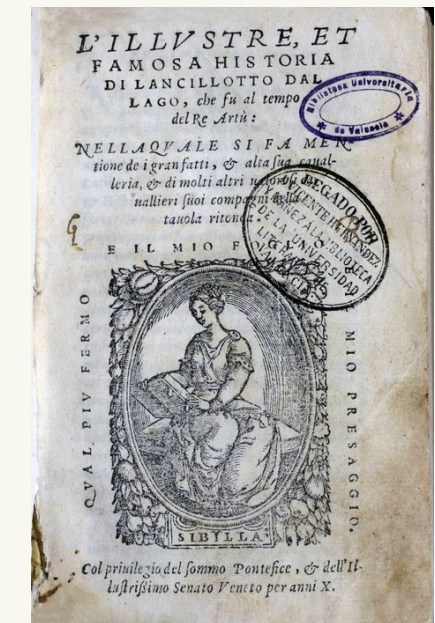 L'ILLVSTRE, ET
FAMOSA HISTORIA
DI LANCILLOTTO DAL
LAGO, che fu al tempo
del Re Artù:
NELLAQVALE SI FA MEN-
tione de i gran fatti, & alta sua caual-
leria, & di molti altri
uallieri suoi compagni della
tauola ritonda.
Biblioteca Universitaria
de Valencia
LEGADO POR
VICENTE HERNANDEZ
A LA BIBLIOTECA
DE LA UNIVERSIDAD
LITERARIA
E IL MIO
QVAL PIV FERMO
MIO PRESAGGIO.
SIBYLLA
Col priuilegio del sommo Pontefice, & dell'Il-
lustrissimo Senato Veneto per anni X.